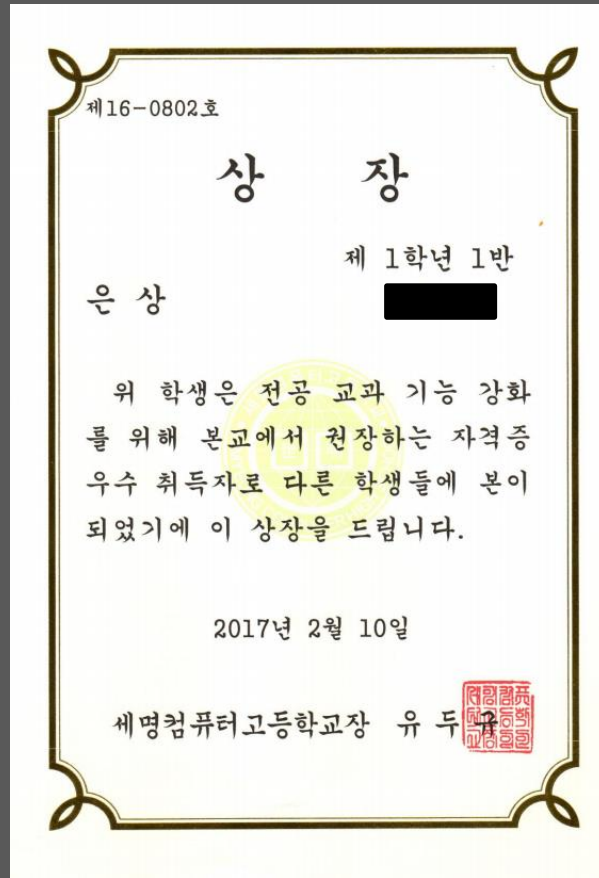 제16-0802호
상 장
제 1학년 1반
은 상
위 학생은 전공 교과 기능 강화
를 위해 본교에서 권장하는 자격증
우수 취득자로 다른 학생들에 본이
되었기에 이 상장을 드립니다.
2017년 2월 10일
세명컴퓨터고등학교장 유 두 규